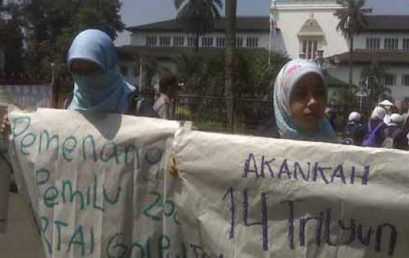 Pemenang
Pemilu 200
RTAI Golput
AKANKAH
14 Trilyun